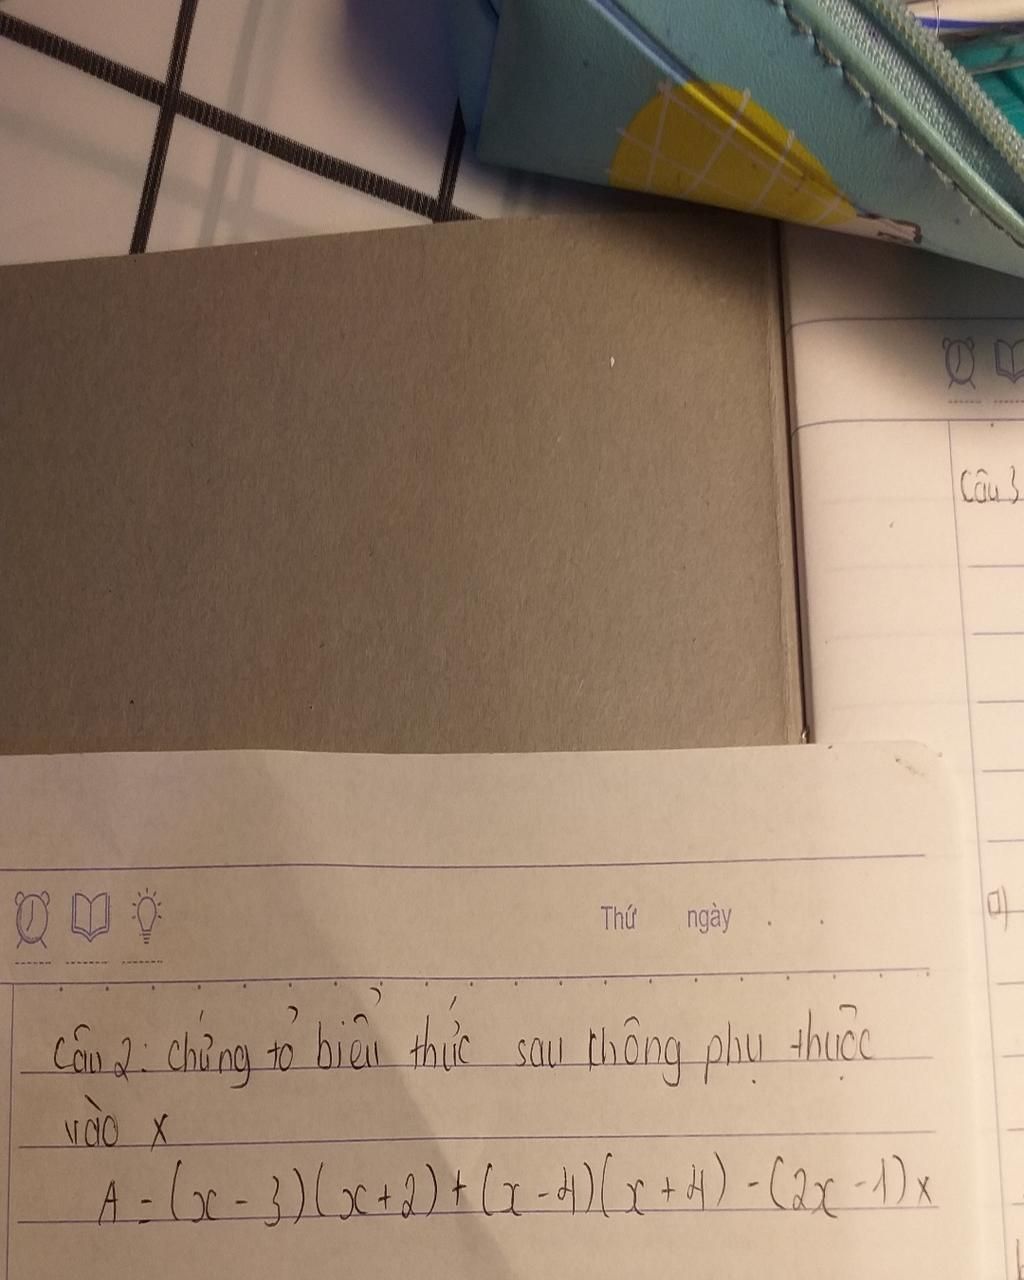 Câu 3
a)
Thứ ngày . .
Câu 2: chứng tỏ biểu thức sau không phụ thuộc
vào x
A = (x - 3)(x + 2) + (x - 4)(x + 4) - (2x - 1)x